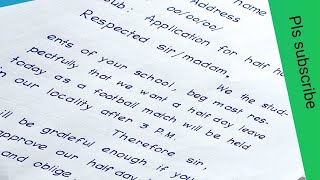 name
Address
00/00/00/
Sub: Application for half ho
Respected sir/madam,
We the stud-
ents of your school, beg most res-
pectfully that we want a half day leave
today as a football match will be held
in our locality after 3 P.M.
Therefore sir,
ll be grateful enough if you
approve our half day
and oblige
Pls subscribe